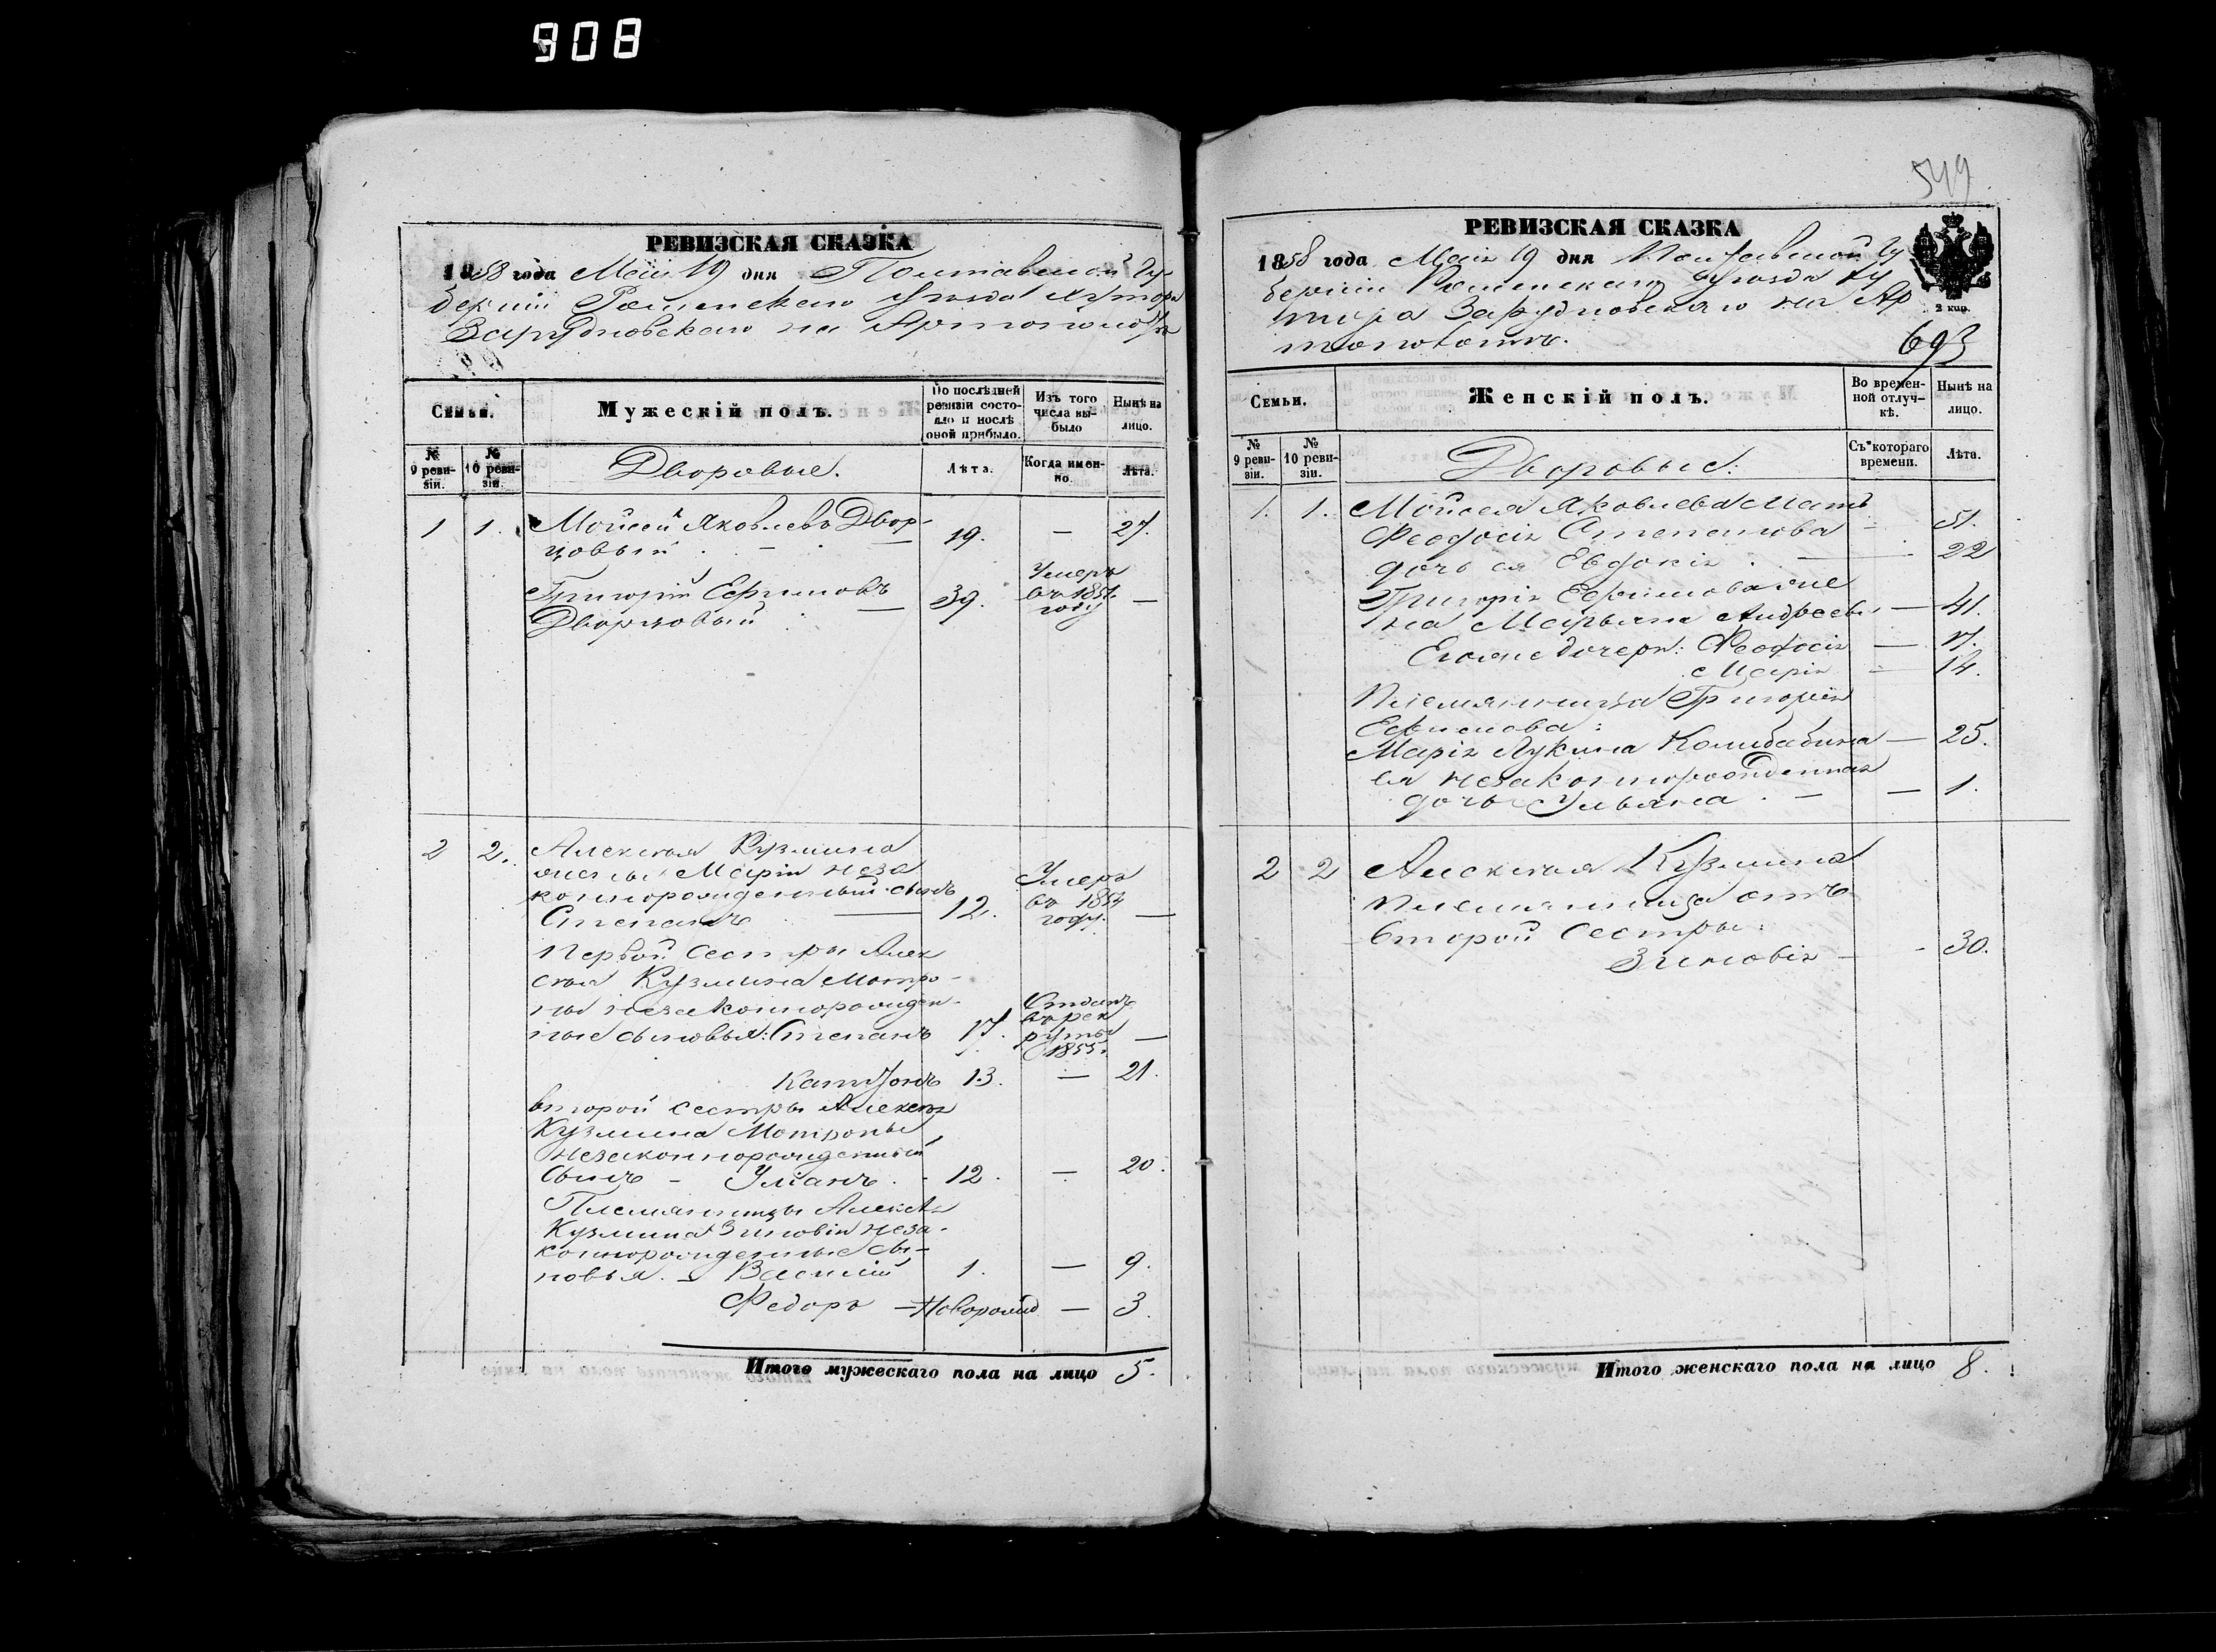 908
РЕВИЗСКАЯ СКАЗКА
1858 года Маія 19 дня Полтавской Гу-
берніи Роменскаго Уезда хутора
Зарудновскаго на Артополотѣ
Семьи.
Мужескій полъ.
По послѣдней ревизіи состояло и послѣ оной прибыло.
Изъ того числа выбыло
Нынѣ на лицо.
№ 9 ревизіи.
№ 10 ревизіи.
Дворовые.
Лѣта.
Когда именно.
Лѣта.
1 1. Мойсей Яковлевъ Двор-
цовый . — 19. — 27.
Григорій Ефимовъ
Дворцовый — 39. Умеръ въ 1851. году —
2 2. Алексѣя Кузмина
жены Маріи неза
коннорожденный сынъ
Степанъ — 12. Умеръ въ 1854 году. —
Первой сестры Алек
сѣя Кузмина Мотро-
ны незаконнорожден-
ные сыновья: Степанъ 17. Отданъ въ рекруты 1855. —
Капитонъ 13. — 21.
второй сестры Алексѣя
Кузмина Мотроны
незаконнорожденный
сынъ - Уліанъ . 12. — 20.
Племянницы Алексѣя
Кузмина Зиновіи неза-
коннорожденные сы-
новья. - Василій 1. — 9.
Федоръ — Новорожд — 3.
Итого мужескаго пола на лицо 5.
549
РЕВИЗСКАЯ СКАЗКА
1858 года Маія 19 дня Полтавской Гу
берніи Роменскаго Уезда ху
тора Зарудновскаго на Ар
тополотѣ.
2 коп.
693
Семьи.
Женскій полъ.
Во временной отлучкѣ.
Нынѣ на лицо.
№ 9 ревизіи.
№ 10 ревизіи.
Дворовые:
Съ котораго времени.
Лѣта.
1. 1. Мойсея Яковлева мать
Феодосія Степанова - 51.
дочь ея Евдокія . — 22
Григорія Ефимова же
на Марьяна Андреева — 41.
Егоже дочери: Феодосія — 17.
Марія - 14.
Племянница Григорія
Ефимова:
Марія Лукина Колибабина — 25.
ея незаконнорожденная
дочь Ульяна . — — 1.
2 2 Алексѣя Кузмина
племянница отъ
второй сестры:
Зиновія — - 30.
Итого женскаго пола на лицо 8.